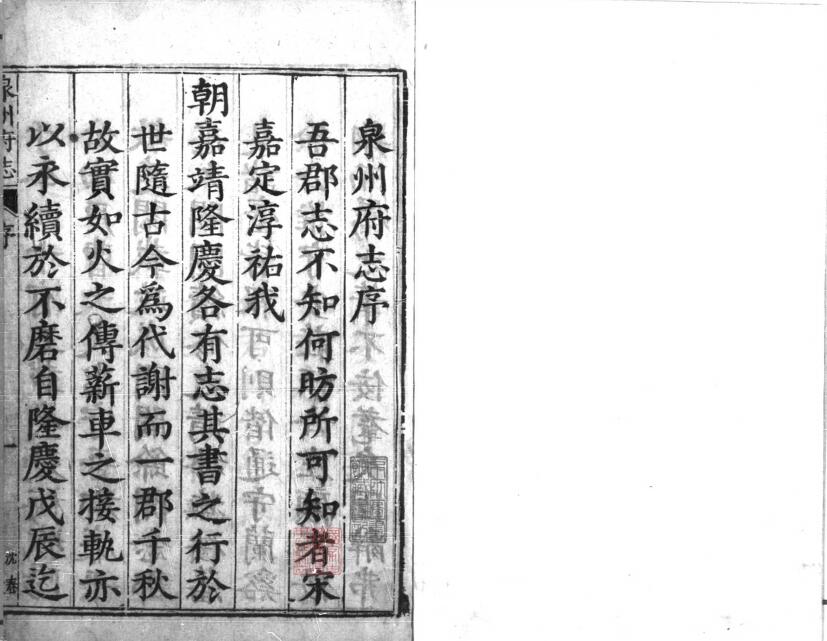 泉州府志序
吾郡志不知何昉所可知者宋
嘉定淳祐我
朝嘉靖隆慶各有志其書之行於
世隨古今爲代謝而一郡千秋
故實如火之傳薪車之接軌亦
以永續於不磨自隆慶戊辰迄
泉州府志
序
一
沈春